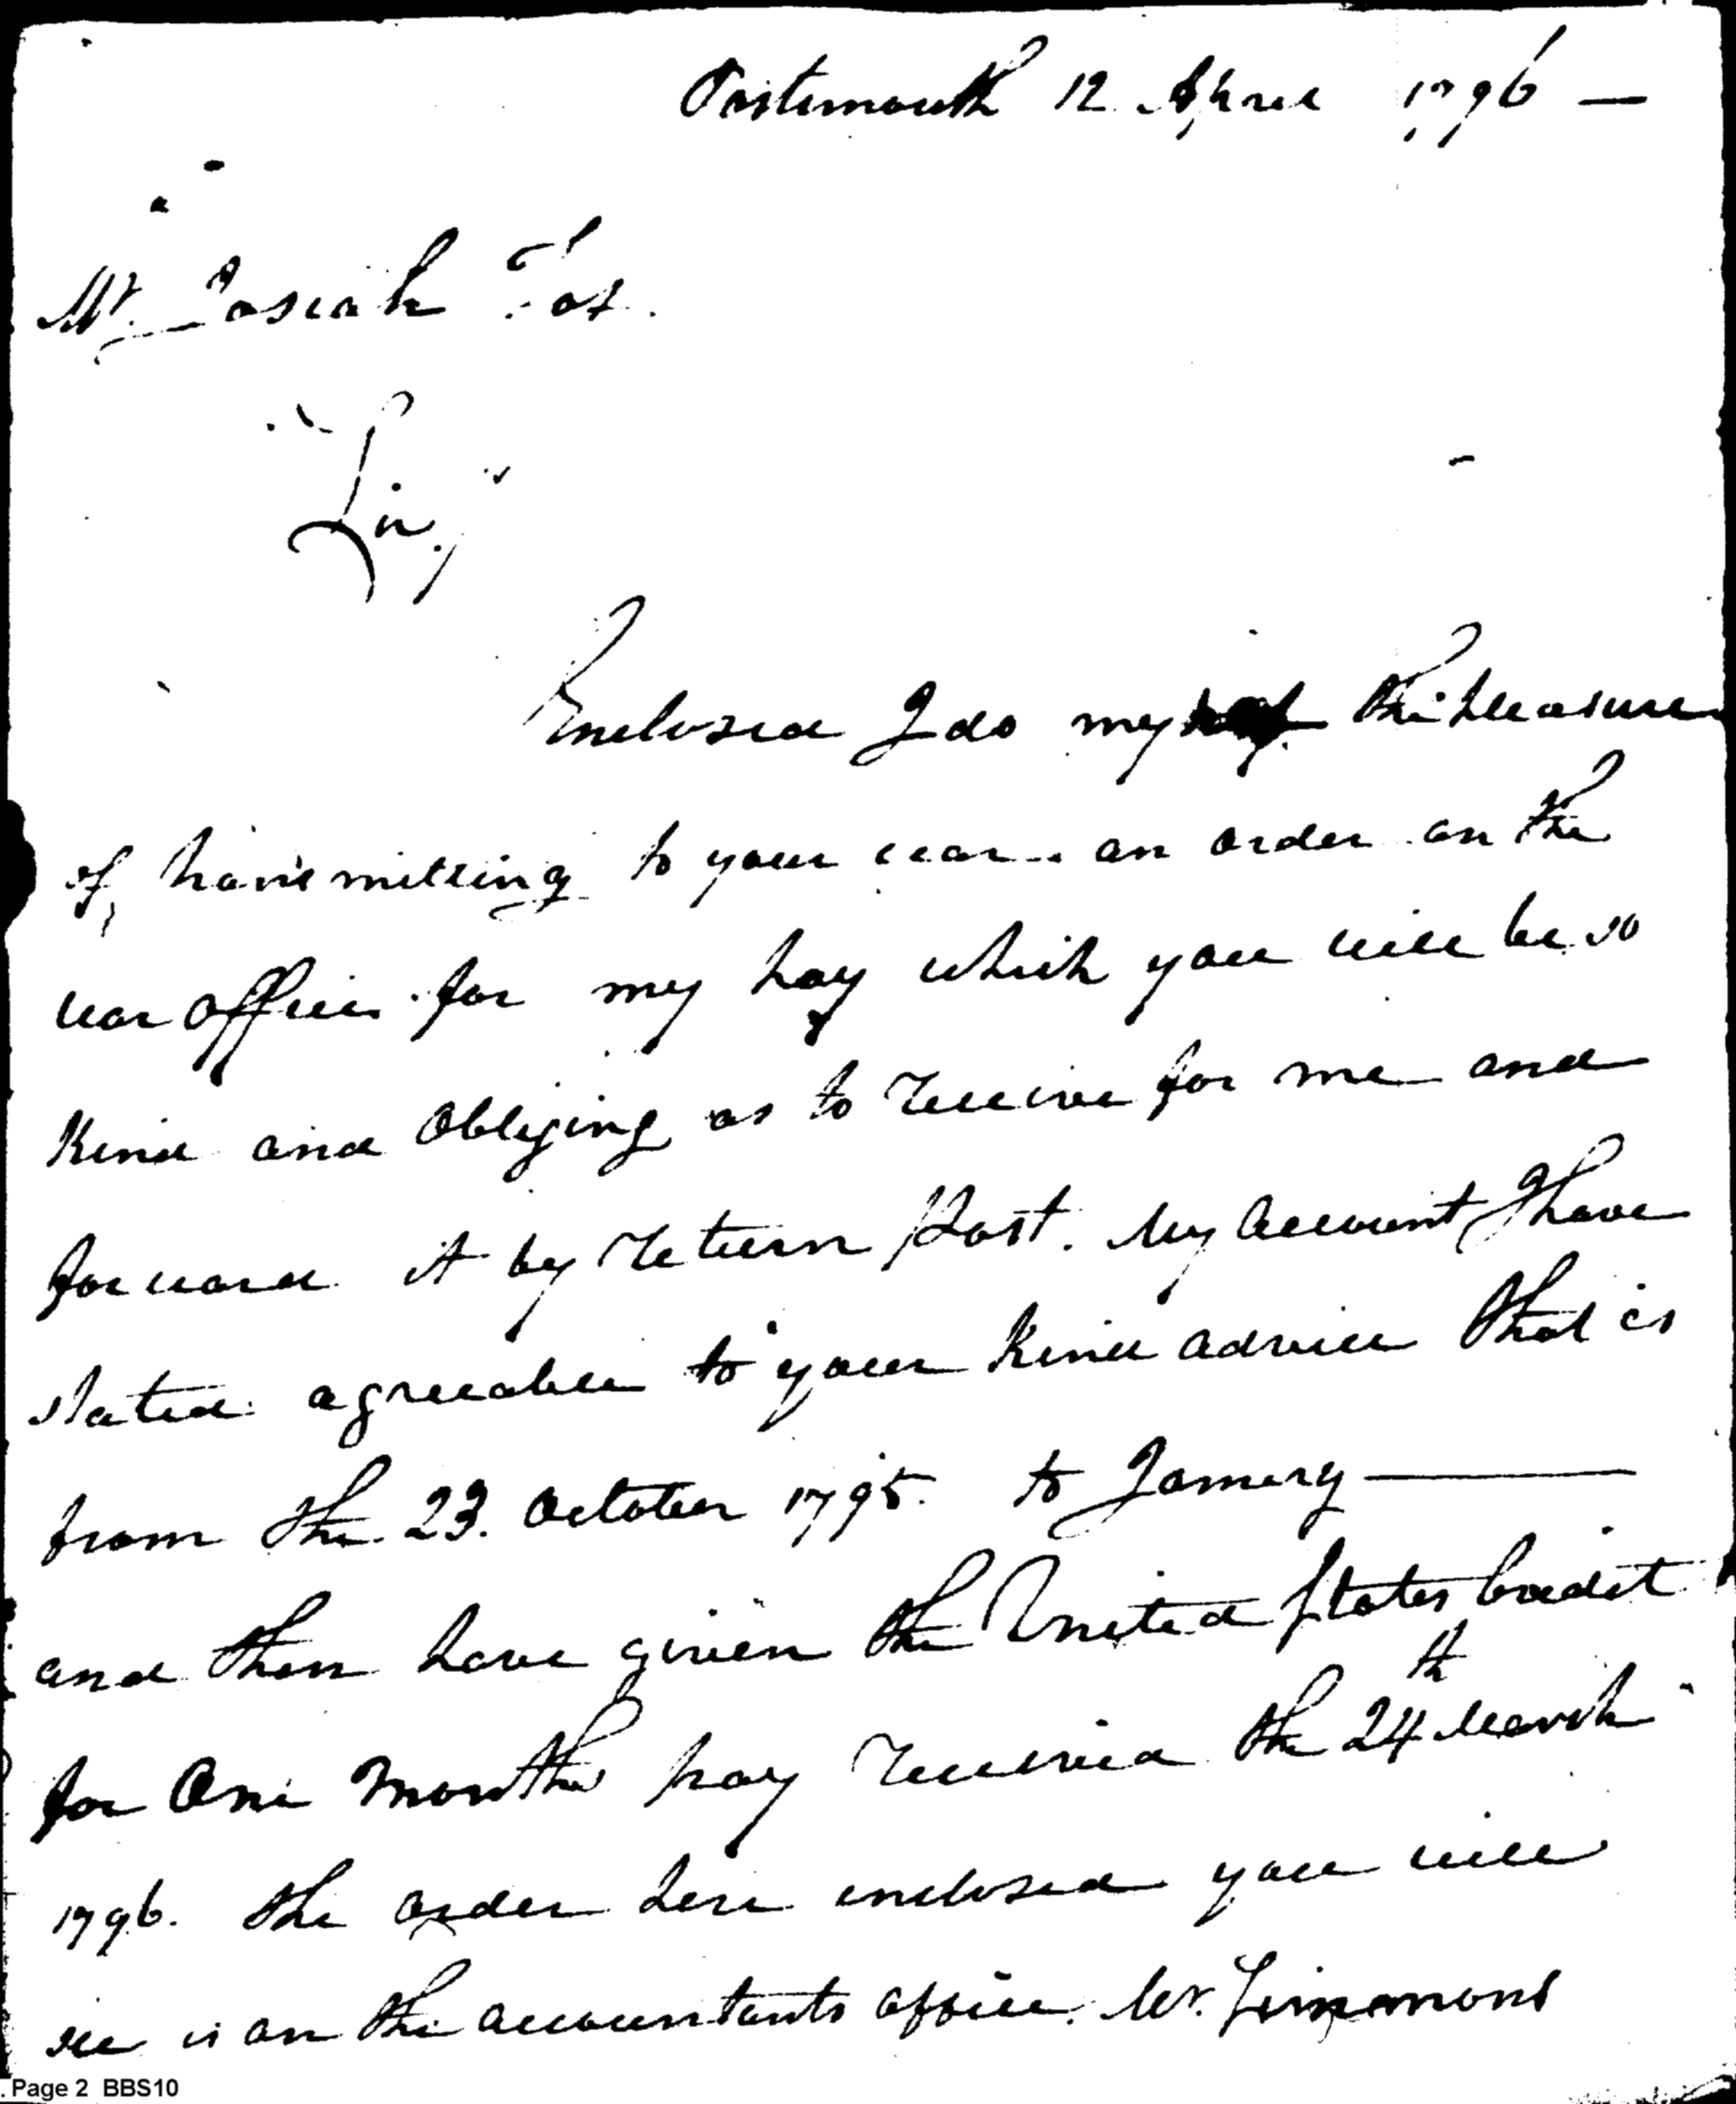 Portsmouth 12 April 1796 —
Mr. Josiah Fox.
Sir,
Enclosed I do my the pleasure
of transmitting to your care an order on the
war office for my pay which you will be so
kind and obliging as to receive for me and
forward it by return post. My account I have
stated agreeable to your kind advice that is
from the 23. October 1795. to Jamery ———
and then have given the United States Credit
for One Months pay received the 24th March
1796. the order here enclosed you will
see is on the accountants office. Mr. Simmons
Page 2 BBS10